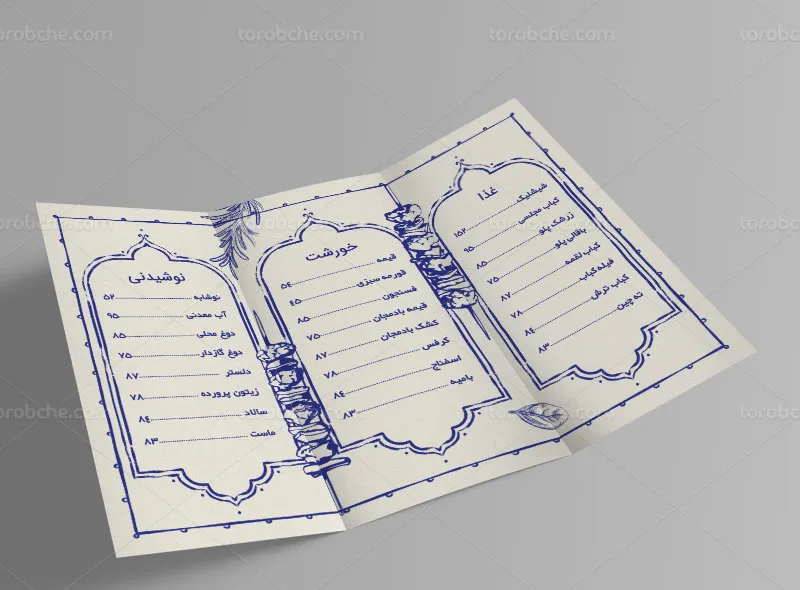 torobche.com torobche.com torobche.com torobche.com
غذا
شیشلیک ........ ۱۵۲
کباب مجلسی ........ ۹۵
زرشک پلو ........ ۸۵
باقالی پلو ........ ۷۵
کباب لقمه ........ ۸۷
فیله کباب ........ ۷۸
کباب ترش ........ ۸۴
ته چین ........ ۸۳
خورشت
قیمه ........ ۵۴
قورمه سبزی ........ ۴۵
فسنجون ........ ۸۵
قیمه بادمجان ........ ۷۵
کشک بادمجان ........ ۸۷
کرفس ........ ۷۸
اسفناج ........ ۸۴
بامیه ........ ۸۳
نوشیدنی
نوشابه ........ ۵۲
آب معدنی ........ ۹۵
دوغ محلی ........ ۸۵
دوغ گازدار ........ ۷۵
دلستر ........ ۸۷
زیتون پرورده ........ ۷۸
سالاد ........ ۸۴
ماست ........ ۸۳